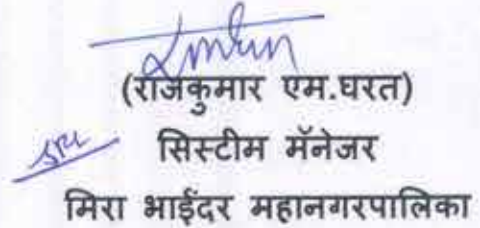 (राजकुमार एम.घरत)
सिस्टीम मॅनेजर
मिरा भाईंदर महानगरपालिका